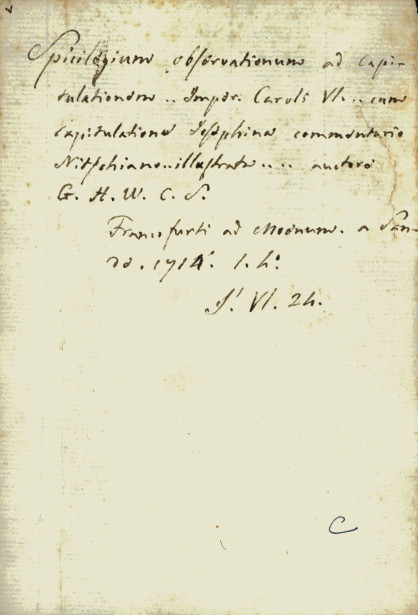 Spicilegium observationum ad Capi-
tulationem .. Imper. Caroli VI. .. cum
capitulatione Josephina commentario
Nitschiano .. illustrata .... auctore
G. H. W. C. S.
Francofurti ad Moenum. a San-
do. 1714. 1. h.
S. VI. 24.
C